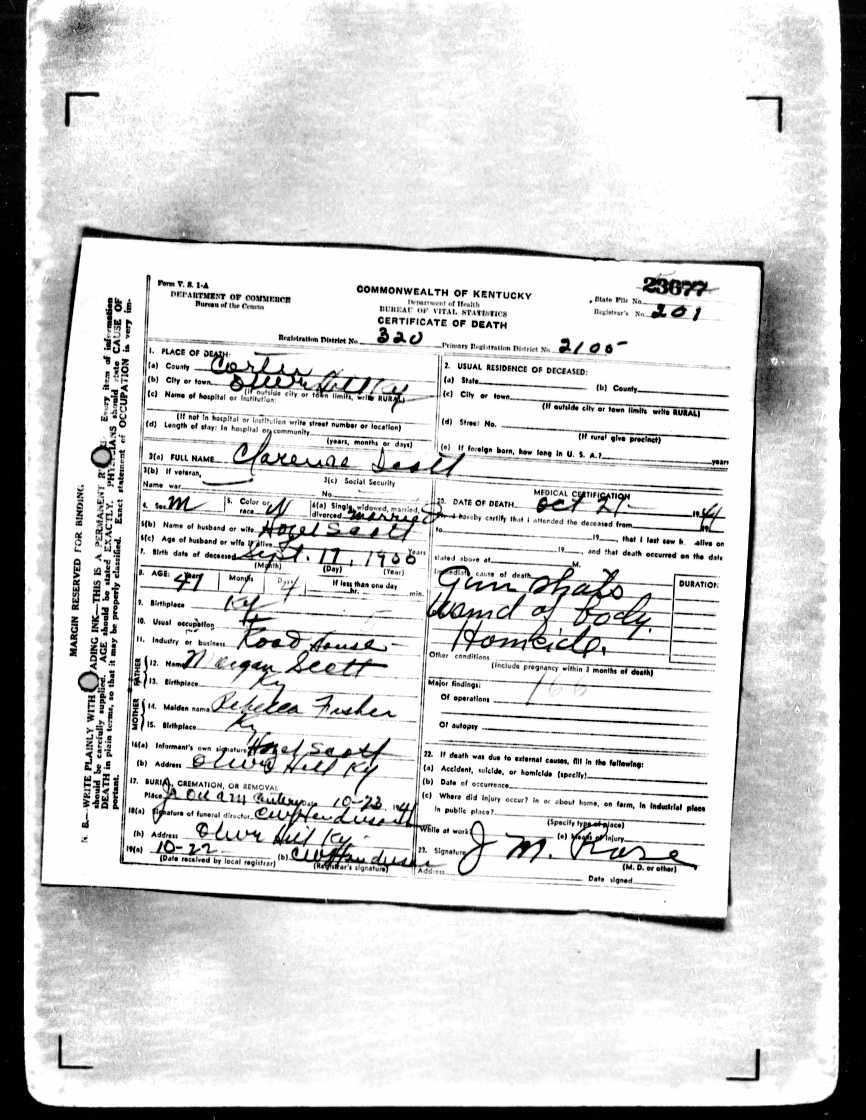 MARGIN RESERVED FOR BINDING.
N. B.—WRITE PLAINLY WITH ADING INK—THIS IS A PERMANENT R Every item of information
should be carefully supplied. AGE should be stated EXACTLY. PHYSICIANS should state CAUSE OF
DEATH in plain terms, so that it may be properly classified. Exact statement of OCCUPATION is very im-
portant.
Form V. S. 1-A
DEPARTMENT OF COMMERCE
Bureau of the Census
COMMONWEALTH OF KENTUCKY
Department of Health
BUREAU OF VITAL STATISTICS
CERTIFICATE OF DEATH
23677
State File No.
Registrar's No. 201
Registration District No. 320
Primary Registration District No. 2105
1. PLACE OF DEATH:
(a) County Carter
(b) City or town Olive Hill Ky
(If outside city or town limits, write RURAL)
(c) Name of hospital or institution:
(If not in hospital or institution write street number or location)
(d) Length of stay: In hospital or community
(years, months or days)
3(a) FULL NAME Clarence Scott
3(b) If veteran,
Name war
3(c) Social Security
No.
4. Sex M
5. Color or race W
6(a) Single, widowed, married, divorced married
6(b) Name of husband or wife Hazel Scott
6(c) Age of husband or wife if alive Years
7. Birth date of deceased Sept. 17, 1900
(Month) (Day) (Year)
8. AGE: Years Months Days If less than one day
hr. min.
9. Birthplace Ky
10. Usual occupation
11. Industry or business Road House
FATHER
12. Name Morgan Scott
13. Birthplace Ky
MOTHER
14. Maiden name Rebecca Fisher
15. Birthplace Ky
16(a) Informant's own signature Hazel Scott
(b) Address Olive Hill Ky
17. BURIAL, CREMATION, OR REMOVAL
Place 10-23 1944
18(a) Signature of funeral director CW Henderson
(b) Address Olive Hill Ky.
19(a) 10-22 (b) CW Henderson
(Date received by local registrar) (Registrar's signature)
2. USUAL RESIDENCE OF DECEASED:
(a) State (b) County
(c) City or town
(If outside city or town limits write RURAL)
(d) Street No.
(If rural give precinct)
(e) If foreign born, how long in U. S. A.? years
MEDICAL CERTIFICATION
20. DATE OF DEATH Oct 21 1944
I hereby certify that I attended the deceased from 19
to 19, that I last saw h alive on
19, and that death occurred on the date
stated above at M.
Immediate cause of death
DURATION
Gun shots
wound of body.
Homicide.
Other conditions
(Include pregnancy within 3 months of death)
166
Major findings:
Of operations
Of autopsy
22. If death was due to external causes, fill in the following:
(a) Accident, suicide, or homicide (specify)
(b) Date of occurrence
(c) Where did injury occur? In or about home, on farm, in industrial place
in public place?
(Specify type of place)
While at work? (e) Means of injury
23. Signature J M. Rose
(M. D. or other)
Address Date signed